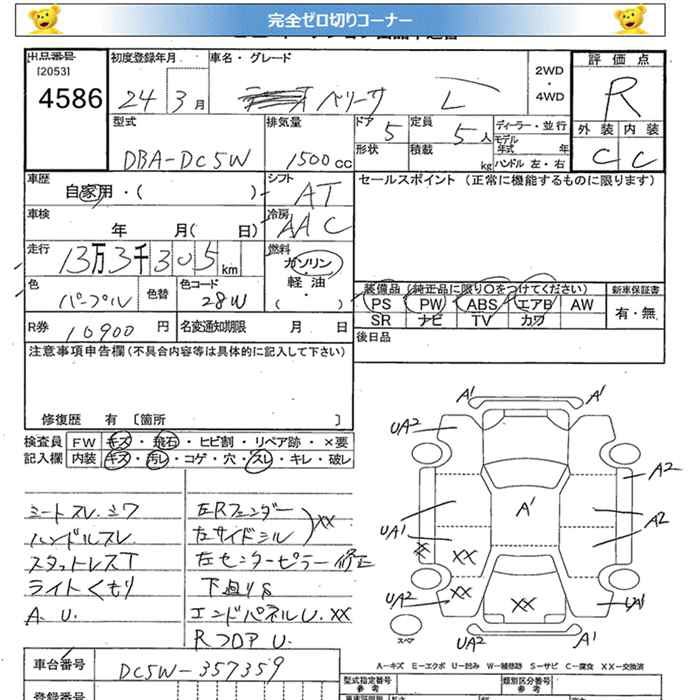 完全ゼロ切りコーナー
出品番号 初度登録年月 車名・グレード 評価点
[2053]
4586 24年3月 ベリーサ L 2WD・4WD R
外装 内装
C C
型式 排気量 ドア 定員 ディーラー・並行
DBA-DC5W 1500cc 5 5人 モデル年式 年
形状 積載 kg ハンドル 左・右
車歴 シフト セールスポイント (正常に機能するものに限ります)
自家用・( ) AT
車検 冷房
年 月( 日) AAC
走行 燃料
13万3千305km ガソリン・軽油・( )
色 色替 色コード
パープル 28W
装備品 (純正品に限り○をつけてください) 新車保証書
PS PW ABS エアB AW 有・無
SR ナビ TV カワ
R券 10900円 名変通知期限 月 日 後日品
注意事項申告欄(不具合内容等は具体的に記入して下さい)
修復歴 有 〔箇所 〕
検査員 FW キズ・飛石・ヒビ割・リペア跡・×要
記入欄 内装 キズ・汚レ・コゲ・穴・スレ・キレ・破レ
シートスレ、シワ
ハンドルスレ
スタットレスT
ライトくもり
A. U.
左Rフェンダー
左サイドシル XX
左センターピラー修正
下廻りS
エンドパネルU. XX
RフロアU.
A1 A1
UA2
A2
A1
UA1 A2
XX XX
UA2 XX XX UA1
スペア UA2 A1
A-キズ E-エクボ U-凹み W-補修跡 S-サビ C-腐食 XX-交換済
車台番号 DC5W-357359
型式指定番号 類別区分番号
参考 参考
登録番号